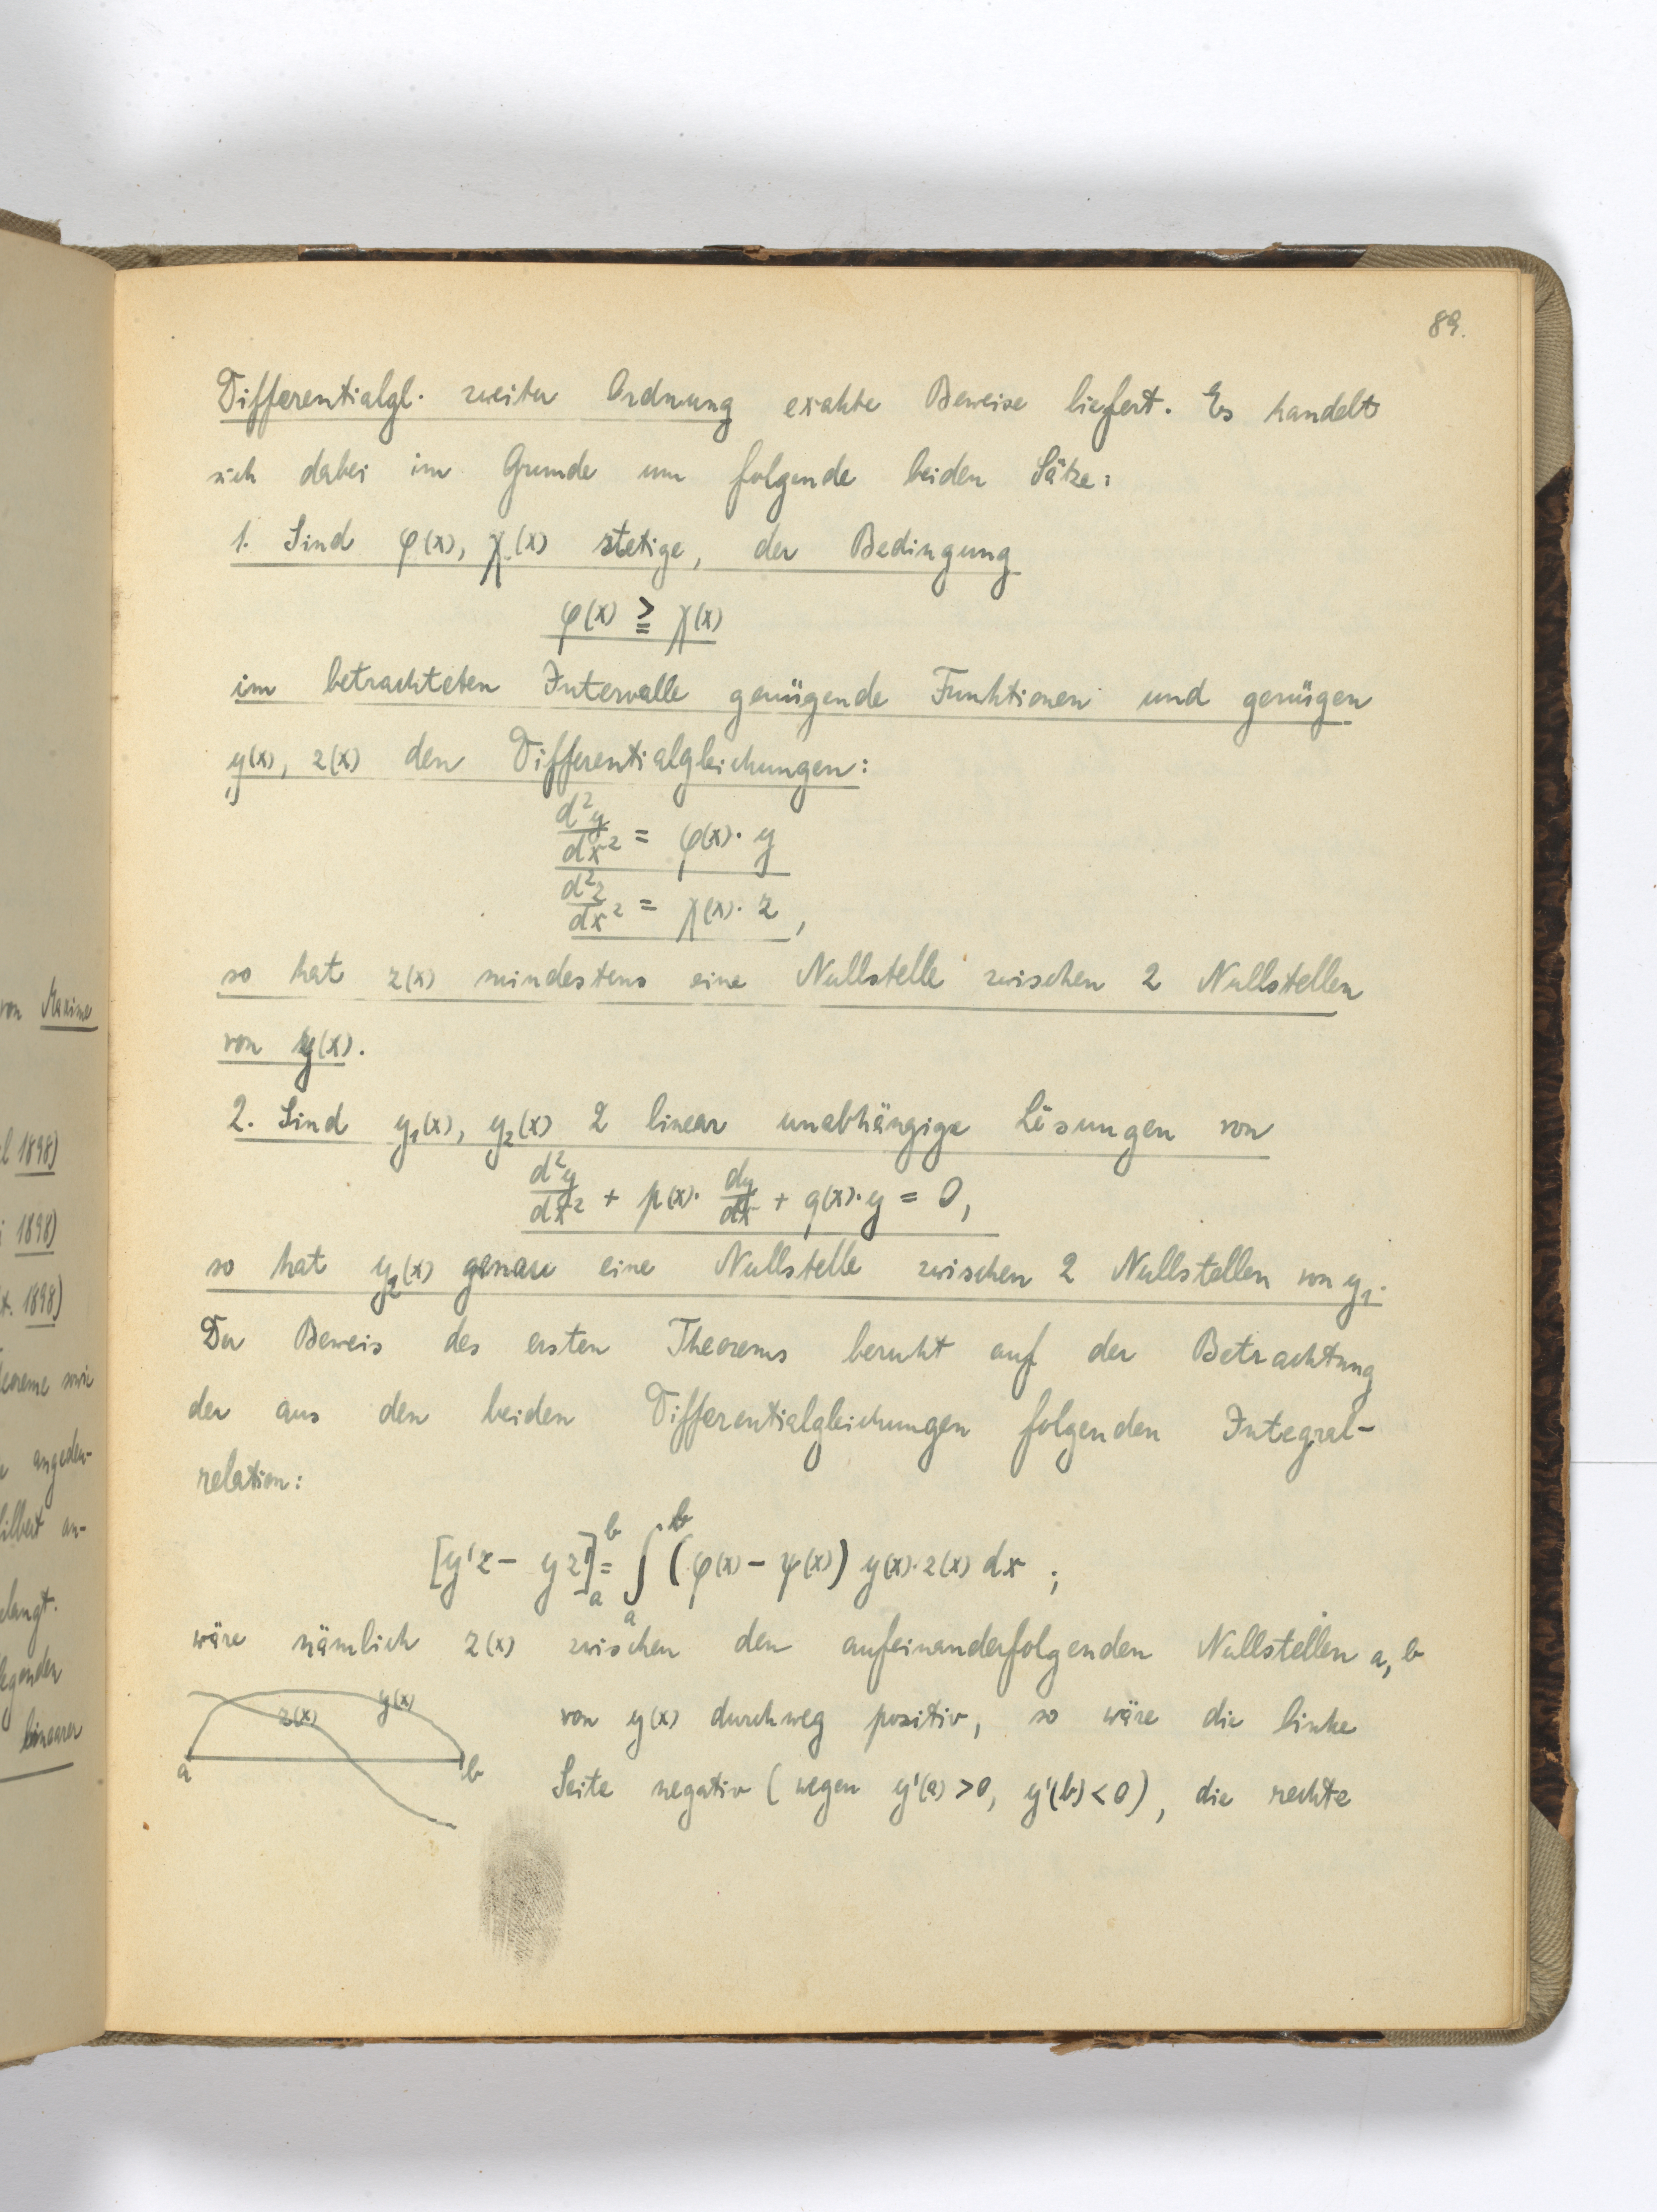 89.
Differentialgl. zweiter Ordnung exakte Beweise liefert. Es handelt
sich dabei im Grunde um folgende beiden Sätze:
1. Sind φ(x), χ(x) stetige, der Bedingung
φ(x) ≧ χ(x)
im betrachteten Intervalle genügende Funktionen und genügen
y(x), z(x) den Differentialgleichungen:
d²y/dx² = φ(x)· y
d²z/dx² = χ(x)· z ,
so hat z(x) mindestens eine Nullstelle zwischen 2 Nullstellen
von y(x).
2. Sind y₁(x), y₂(x) 2 linear unabhängige Lösungen von
d²y/dx² + p(x)· dy/dx + q(x)· y = 0,
so hat y₂(x) genau eine Nullstelle zwischen 2 Nullstellen von y₁.
Der Beweis des ersten Theorems beruht auf der Betrachtung
der aus den beiden Differentialgleichungen folgenden Integral-
relation:
[y'z - yz']ₐᵇ = ∫ₐᵇ (φ(x) - ψ(x)) y(x)·z(x) dx ;
wäre nämlich z(x) zwischen den aufeinanderfolgenden Nullstellen a, b
von y(x) durchweg positiv, so wäre die linke
Seite negativ (wegen y'(a) > 0, y'(b) < 0), die rechte
z(x) y(x)
a b
von Maxime
1898)
1898)
1898)
sowie
angedeu-
an-
linearer